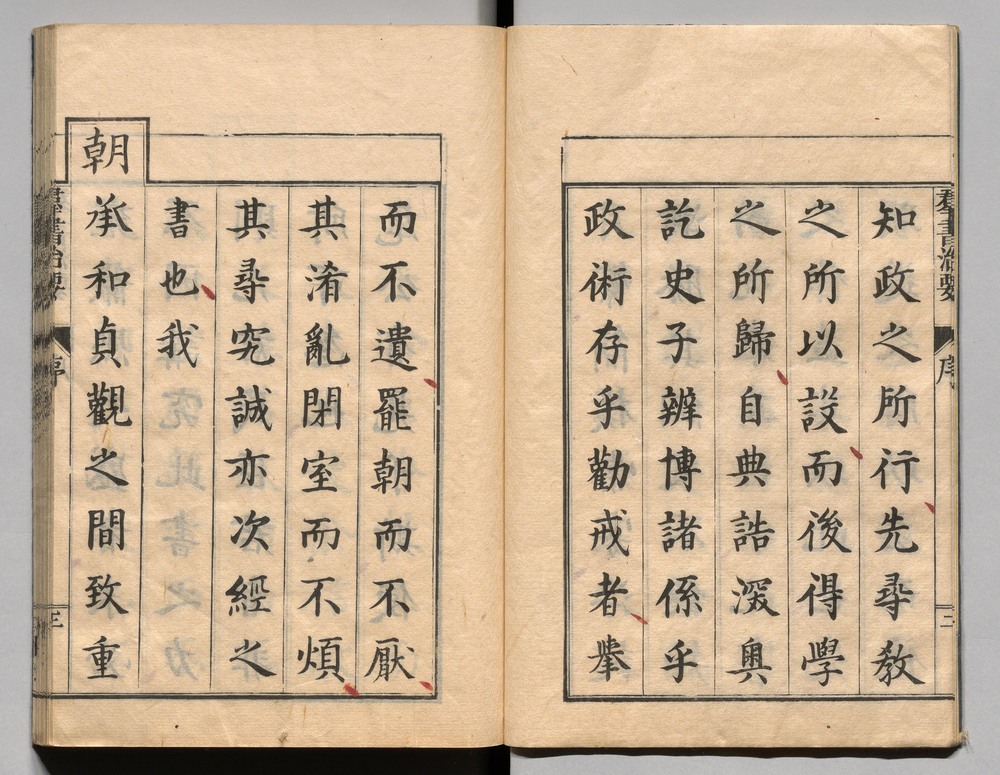 知政之所行先尋教
之所以設而後得學
之所歸自典誥深奥
訖史子辨博諸係乎
政術存乎勸戒者擧
而不遺罷朝而不厭
其淆亂閉室而不煩
其尋究誠亦次經之
書也我
朝
承和貞觀之間致重
羣書治要
序
二
羣書治要
序
三